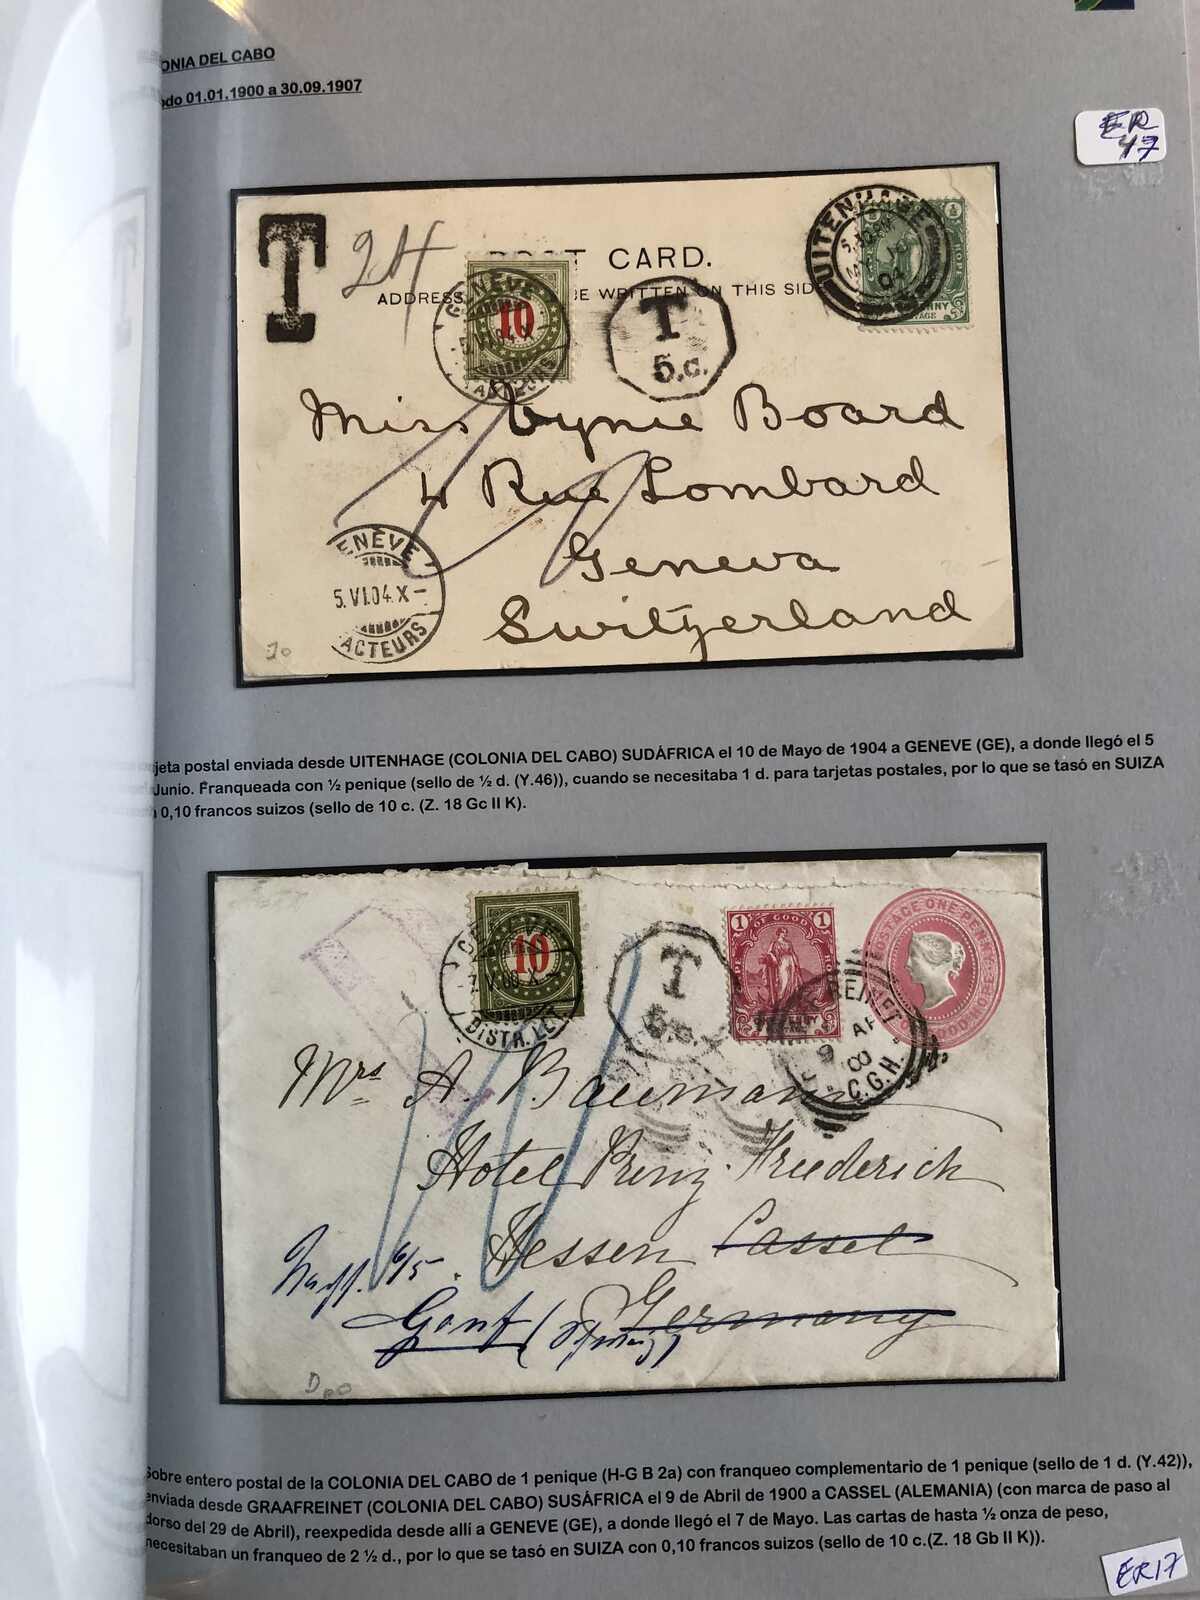 ONIA DEL CABO
odo 01.01.1900 a 30.09.1907
ER
47
T
24
POST CARD.
ADDRESS BE WRITTEN ON THIS SIDE
UITENHAGE
04
HOPE
GENÈVE
10
T
5.c.
Miss Vynie Board
4 Rue Lombard
Geneva
Switzerland
GENÈVE
5.VI.04.X-
FACTEURS
20
jeta postal enviada desde UITENHAGE (COLONIA DEL CABO) SUDÁFRICA el 10 de Mayo de 1904 a GENEVE (GE), a donde llegó el 5
Junio. Franqueada con ½ penique (sello de ½ d. (Y.46)), cuando se necesitaba 1 d. para tarjetas postales, por lo que se tasó en SUIZA
0,10 francos suizos (sello de 10 c. (Z. 18 Gc II K).
GENÈVE
10
-7.V.00.X-
DISTR. LET
T
5.c.
1 OF GOOD 1
POSTAGE ONE PENNY
REINET
9 AP
00
C.G.H.
Mrs A. Baumann
Hotel Prinz Friederich
Hessen Cassel
6/5. Germany
Genf
D
Sobre entero postal de la COLONIA DEL CABO de 1 penique (H-G B 2a) con franqueo complementario de 1 penique (sello de 1 d. (Y.42)),
enviada desde GRAAFREINET (COLONIA DEL CABO) SUSÁFRICA el 9 de Abril de 1900 a CASSEL (ALEMANIA) (con marca de paso al
dorso del 29 de Abril), reexpedida desde allí a GENEVE (GE), a donde llegó el 7 de Mayo. Las cartas de hasta ½ onza de peso,
necesitaban un franqueo de 2 ½ d., por lo que se tasó en SUIZA con 0,10 francos suizos (sello de 10 c.(Z. 18 Gb II K)).
ER17